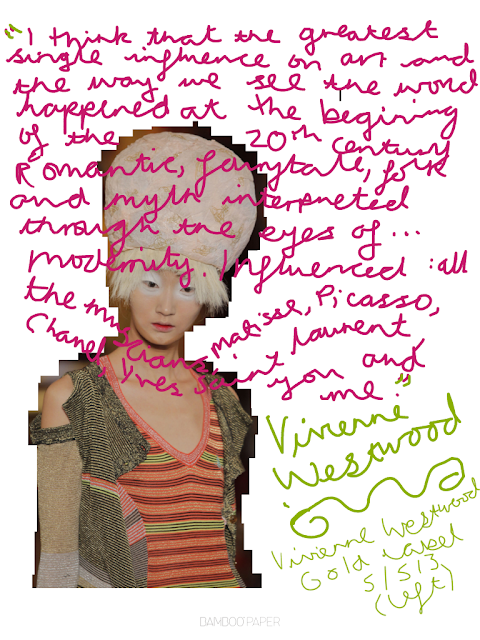 "I think that the greatest
single influence on art and
the way we see the word
happened at the begining
of the 20th century
Romantic, fairytale, folk
and myth interpreted
through the eyes of...
modernity. Influenced: all
the musicians, matisse, Picasso,
Chanel, Yves Saint Laurent,
you and
me."
Vivienne
Westwood
Vivienne Westwood
Gold Label
S/S13
(left)
BAMBOO PAPER